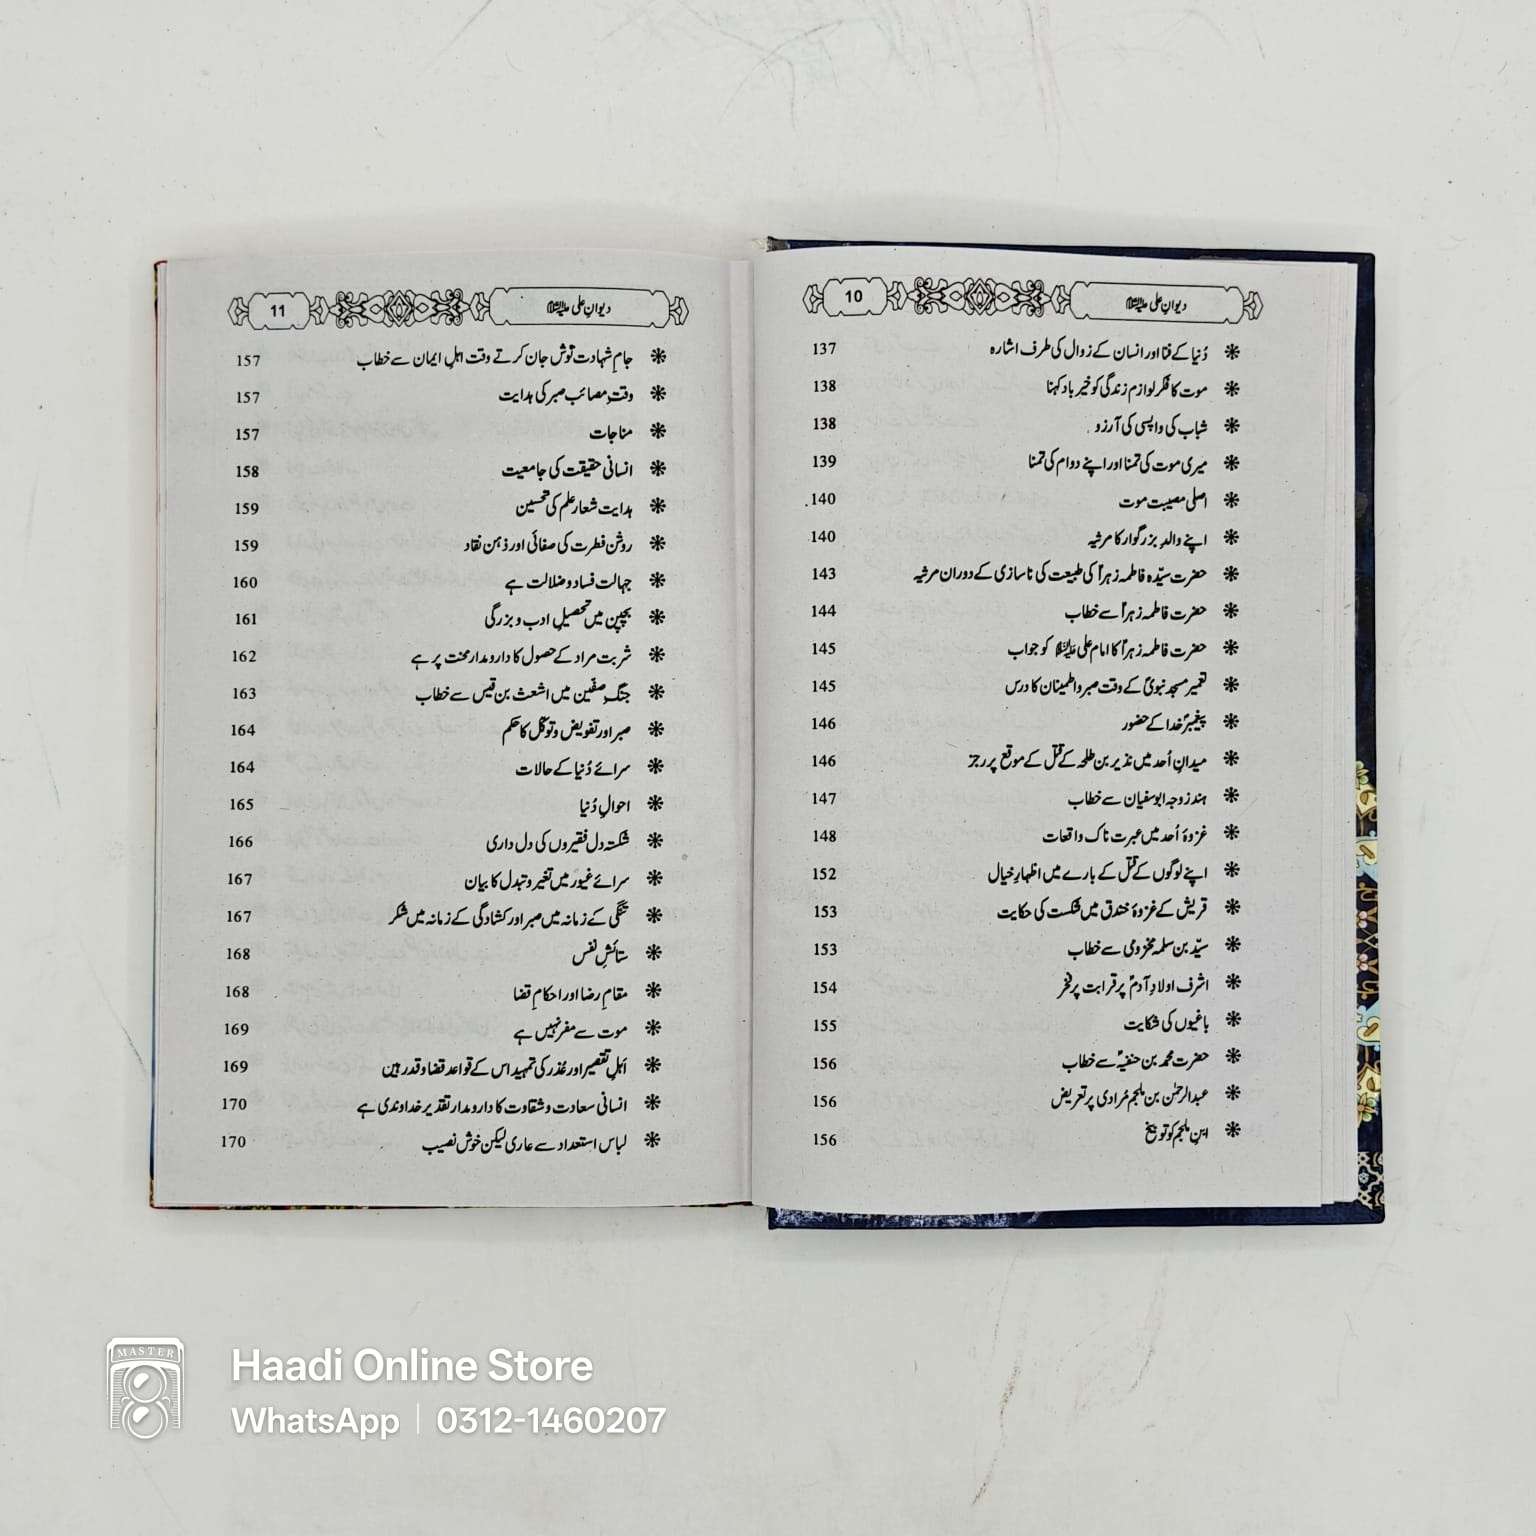 دیوانِ علی علیہ السلام 10
دُنیا کے فنا اور انسان کے زوال کی طرف اشارہ 137
موت کا فکر لوازم زندگی کو خیر باد کہنا 138
شباب کی واپسی کی آرزو 138
میری موت کی تمنا اور اپنے دوام کی تمنا 139
اصلی مصیبت موت 140
اپنے والدِ بزرگوار کا مرثیہ 140
حضرت سیّدہ فاطمہ زہراؑ کی طبیعت کی ناسازی کے دوران مرثیہ 143
حضرت فاطمہ زہراؑ سے خطاب 144
حضرت فاطمہ زہراؑ کا امام علی علیہ السلام کو جواب 145
تعمیر مسجد نبویؐ کے وقت صبر و اطمینان کا درس 145
پیغمبرؐ خدا کے حضور 146
میدانِ اُحد میں نذیر بن طلحہ کے قتل کے موقع پر رجز 146
ہند زوجہ ابوسفیان سے خطاب 147
غزوۂ اُحد میں عبرت ناک واقعات 148
اپنے لوگوں کے قتل کے بارے میں اظہارِ خیال 152
قریش کے غزوۂ خندق میں شکست کی حکایت 153
سیّد بن سلمہ مخزومی سے خطاب 153
اشرف اولادِ آدمؑ پر قرابت پر فخر 154
باغیوں کی شکایت 155
حضرت محمد بن حنفیہؑ سے خطاب 156
عبدالرحمٰن بن ملجم مُرادی پر تعریض 156
ابنِ ملجم کو توبیخ 156
دیوانِ علی علیہ السلام 11
جامِ شہادت نوش جان کرتے وقت اہلِ ایمان سے خطاب 157
وقتِ مصائب صبر کی ہدایت 157
مناجات 157
انسانی حقیقت کی جامعیت 158
ہدایت شعار علم کی تحسین 159
روشن فطرت کی صفائی اور ذہن نقاد 159
جہالت فساد و ضلالت ہے 160
بچپن میں تحصیلِ ادب و بزرگی 161
شربت مراد کے حصول کا دارومدار محنت پر ہے 162
جنگِ صفّین میں اشعث بن قیس سے خطاب 163
صبر اور تفویض و توکّل کا حکم 164
سرائے دُنیا کے حالات 164
احوالِ دُنیا 165
شکستہ دل فقیروں کی دل داری 166
سرائے غیور میں تغیر و تبدل کا بیان 167
تنگی کے زمانہ میں صبر اور کشادگی کے زمانہ میں شکر 167
ستائشِ نفس 168
مقامِ رضا اور احکامِ قضا 168
موت سے مفر نہیں ہے 169
اہلِ تقصیر اور عُذر کی تمہید اس کے قواعد قضا و قدر ہیں 169
انسانی سعادت و شقاوت کا دارومدار تقدیر خداوندی ہے 170
لباس استعداد سے عاری لیکن خوش نصیب 170
MASTER
Haadi Online Store
WhatsApp | 0312-1460207